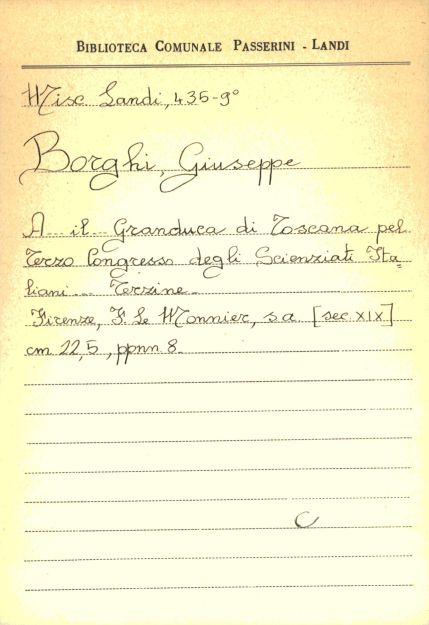 BIBLIOTECA COMUNALE PASSERINI - LANDI
Misc Landi, 435-9°
Borghi, Giuseppe
A... il... Granduca di Toscana pel
Terzo Congresso degli Scienziati Ita=
liani... Terzine.
Firenze, F. Le Monnier, s.a [sec. XIX]
cm. 22,5, ppnn 8.
C